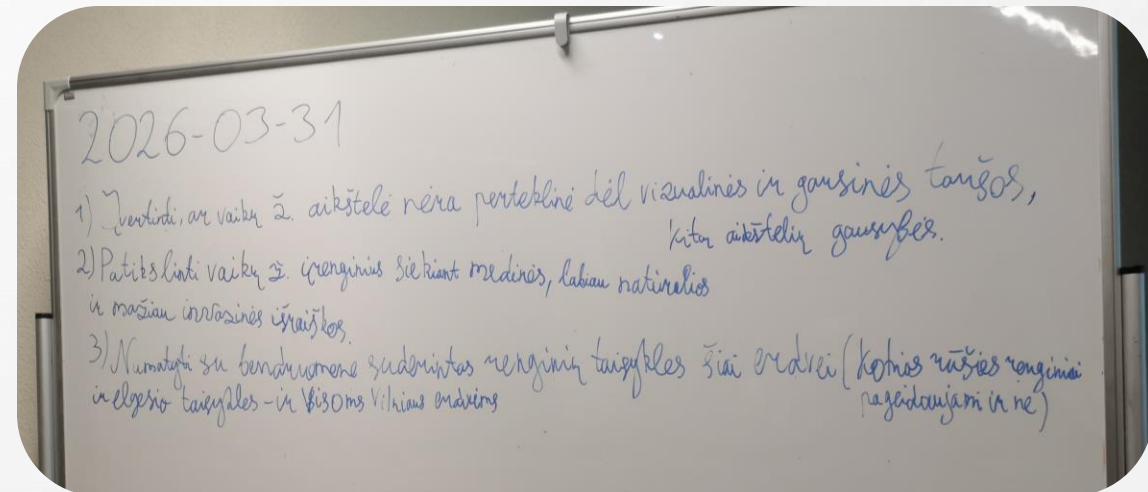 2026-03-31
1) Įvertinti, ar vaikų ž. aikštelė nėra perteklinė dėl vizualinės ir garsinės taršos,
kitų aikštelių gausybės.
2) Patikslinti vaikų ž. įrenginius siekiant medinės, labiau natūralios
ir mažiau invazinės išraiškos.
3) Numatyti su bendruomene suderintas renginių taisykles šiai erdvei (kokios rūšies renginiai
ir elgesio taisykles - ir visoms Vilniaus erdvėms
pageidaujami ir ne)